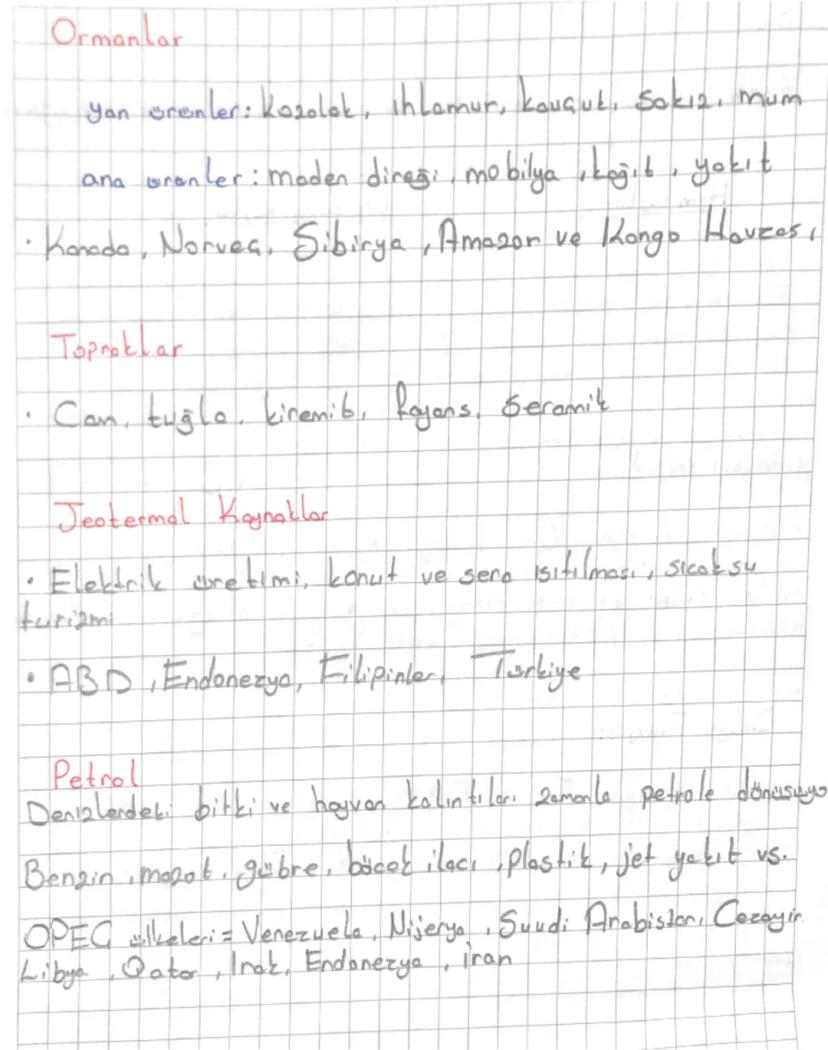 Ormanlar
yan ürünler: kozalak, ıhlamur, kauçuk, sakız, mum
ana ürünler: maden direği, mobilya, kağıt, yakıt
• Kanada, Norveç, Sibirya, Amazon ve Kongo Havzası
Topraklar
• Cam, tuğla, kiremit, fayans, seramik
Jeotermal Kaynaklar
• Elektrik üretimi, konut ve sera ısıtılması, sıcak su
turizmi
• ABD, Endonezya, Filipinler, Türkiye
Petrol
Denizlerdeki bitki ve hayvan kalıntıları zamanla petrole dönüşüyo
Benzin, mazot, gübre, böcek ilacı, plastik, jet yakıt vs.
OPEC ülkeleri = Venezuela, Nijerya, Suudi Arabistan, Cezayir
Libya, Qatar, Irak, Endonezya, İran